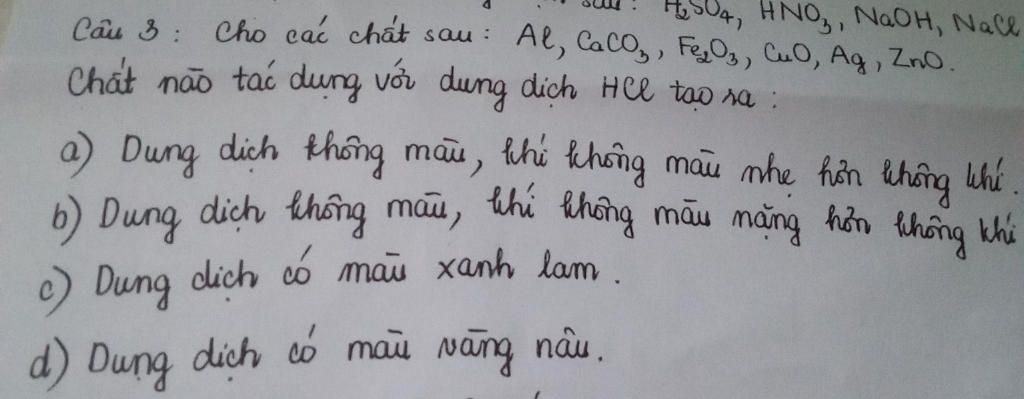 sau: H₂SO₄, HNO₃, NaOH, NaCl
Câu 3: Cho các chất sau: Al, CaCO₃, Fe₂O₃, CuO, Ag, ZnO.
Chất nào tác dụng với dung dịch HCl tạo ra:
a) Dung dịch không màu, khí không màu nhẹ hơn không khí.
b) Dung dịch không màu, khí không màu nặng hơn không khí
c) Dung dịch có màu xanh lam.
d) Dung dịch có màu vàng nâu.